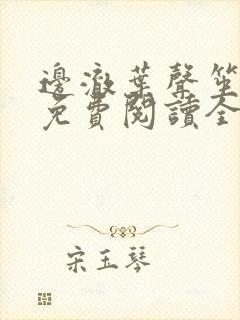 邊澈葉聲笙
免費閱讀全
宋玉琴